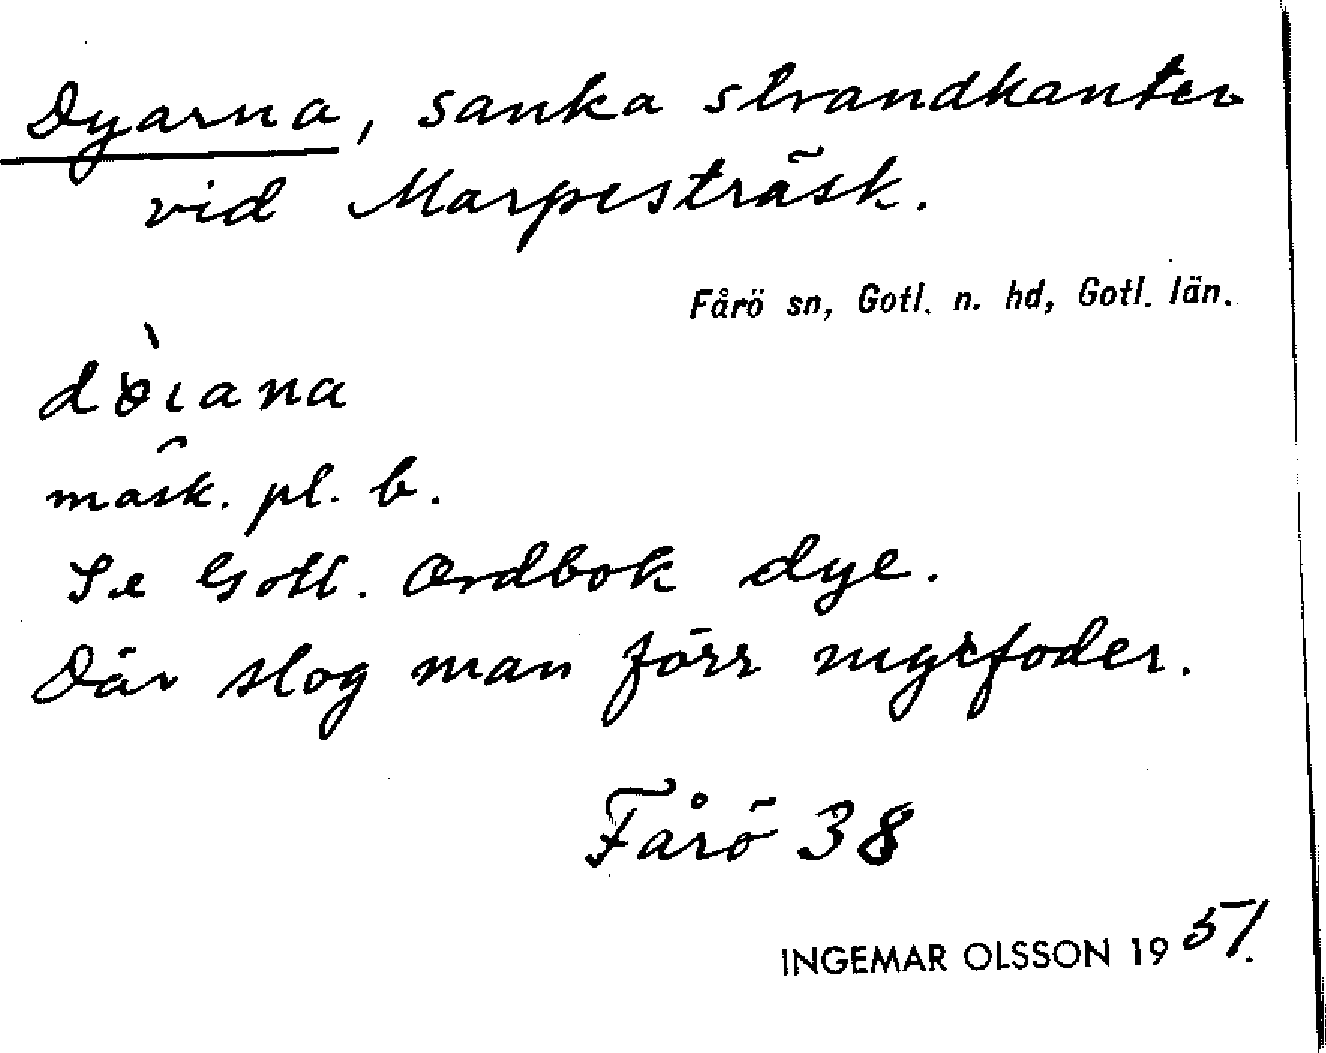 Dyarna, sanka strandkanter
vid Marpesträsk.
Fårö sn, Gotl. n. hd, Gotl. län.
dὸıana
mask. pl. b.
Se Gotl. Ordbok dye.
Där slog man förr myrfoder.
Fårö 38
INGEMAR OLSSON 1951.